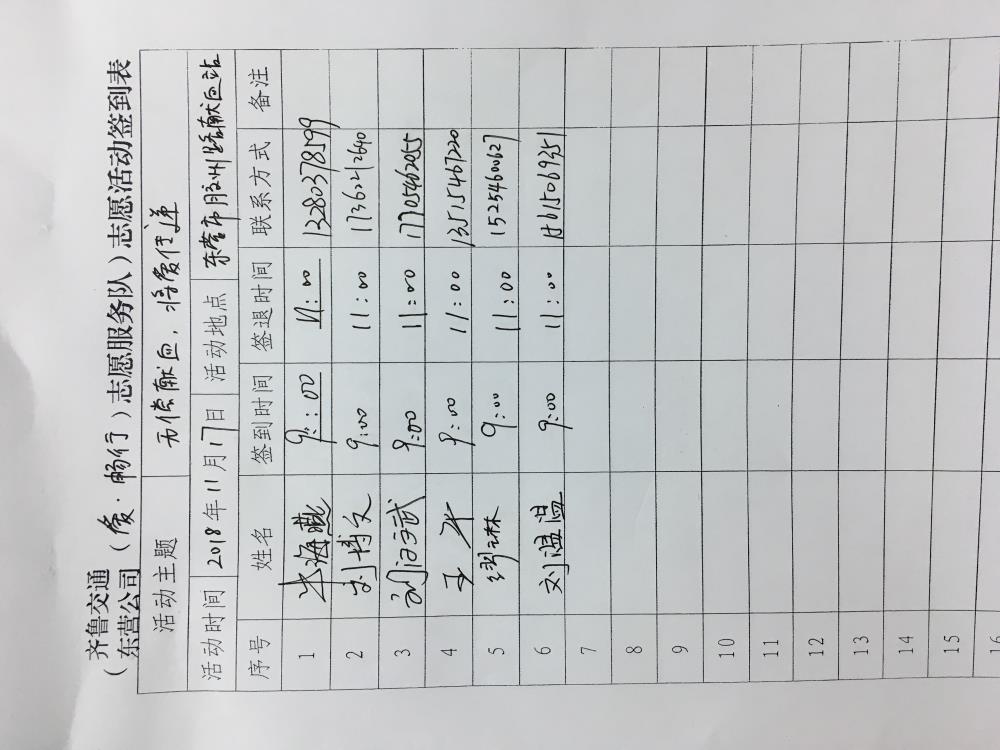 齐鲁交通
（东营公司（爱·畅行）志愿服务队）志愿活动签到表
活动主题 无偿献血，将爱传递
活动时间 2018年11月17日 活动地点 东营市胶州路献血站
序号 姓名 签到时间 签退时间 联系方式 备注
1 海燕 9:00 11:00 13280378599
2 刘博文 9:00 11:00 17362212640
3 刘 武 9:00 11:00 17705462055
4 王 9:00 11:00 13515467220
5 琳 9:00 11:00 15254600627
6 刘温温 9:00 11:00
7
8
9
10
11
12
13
14
15
16